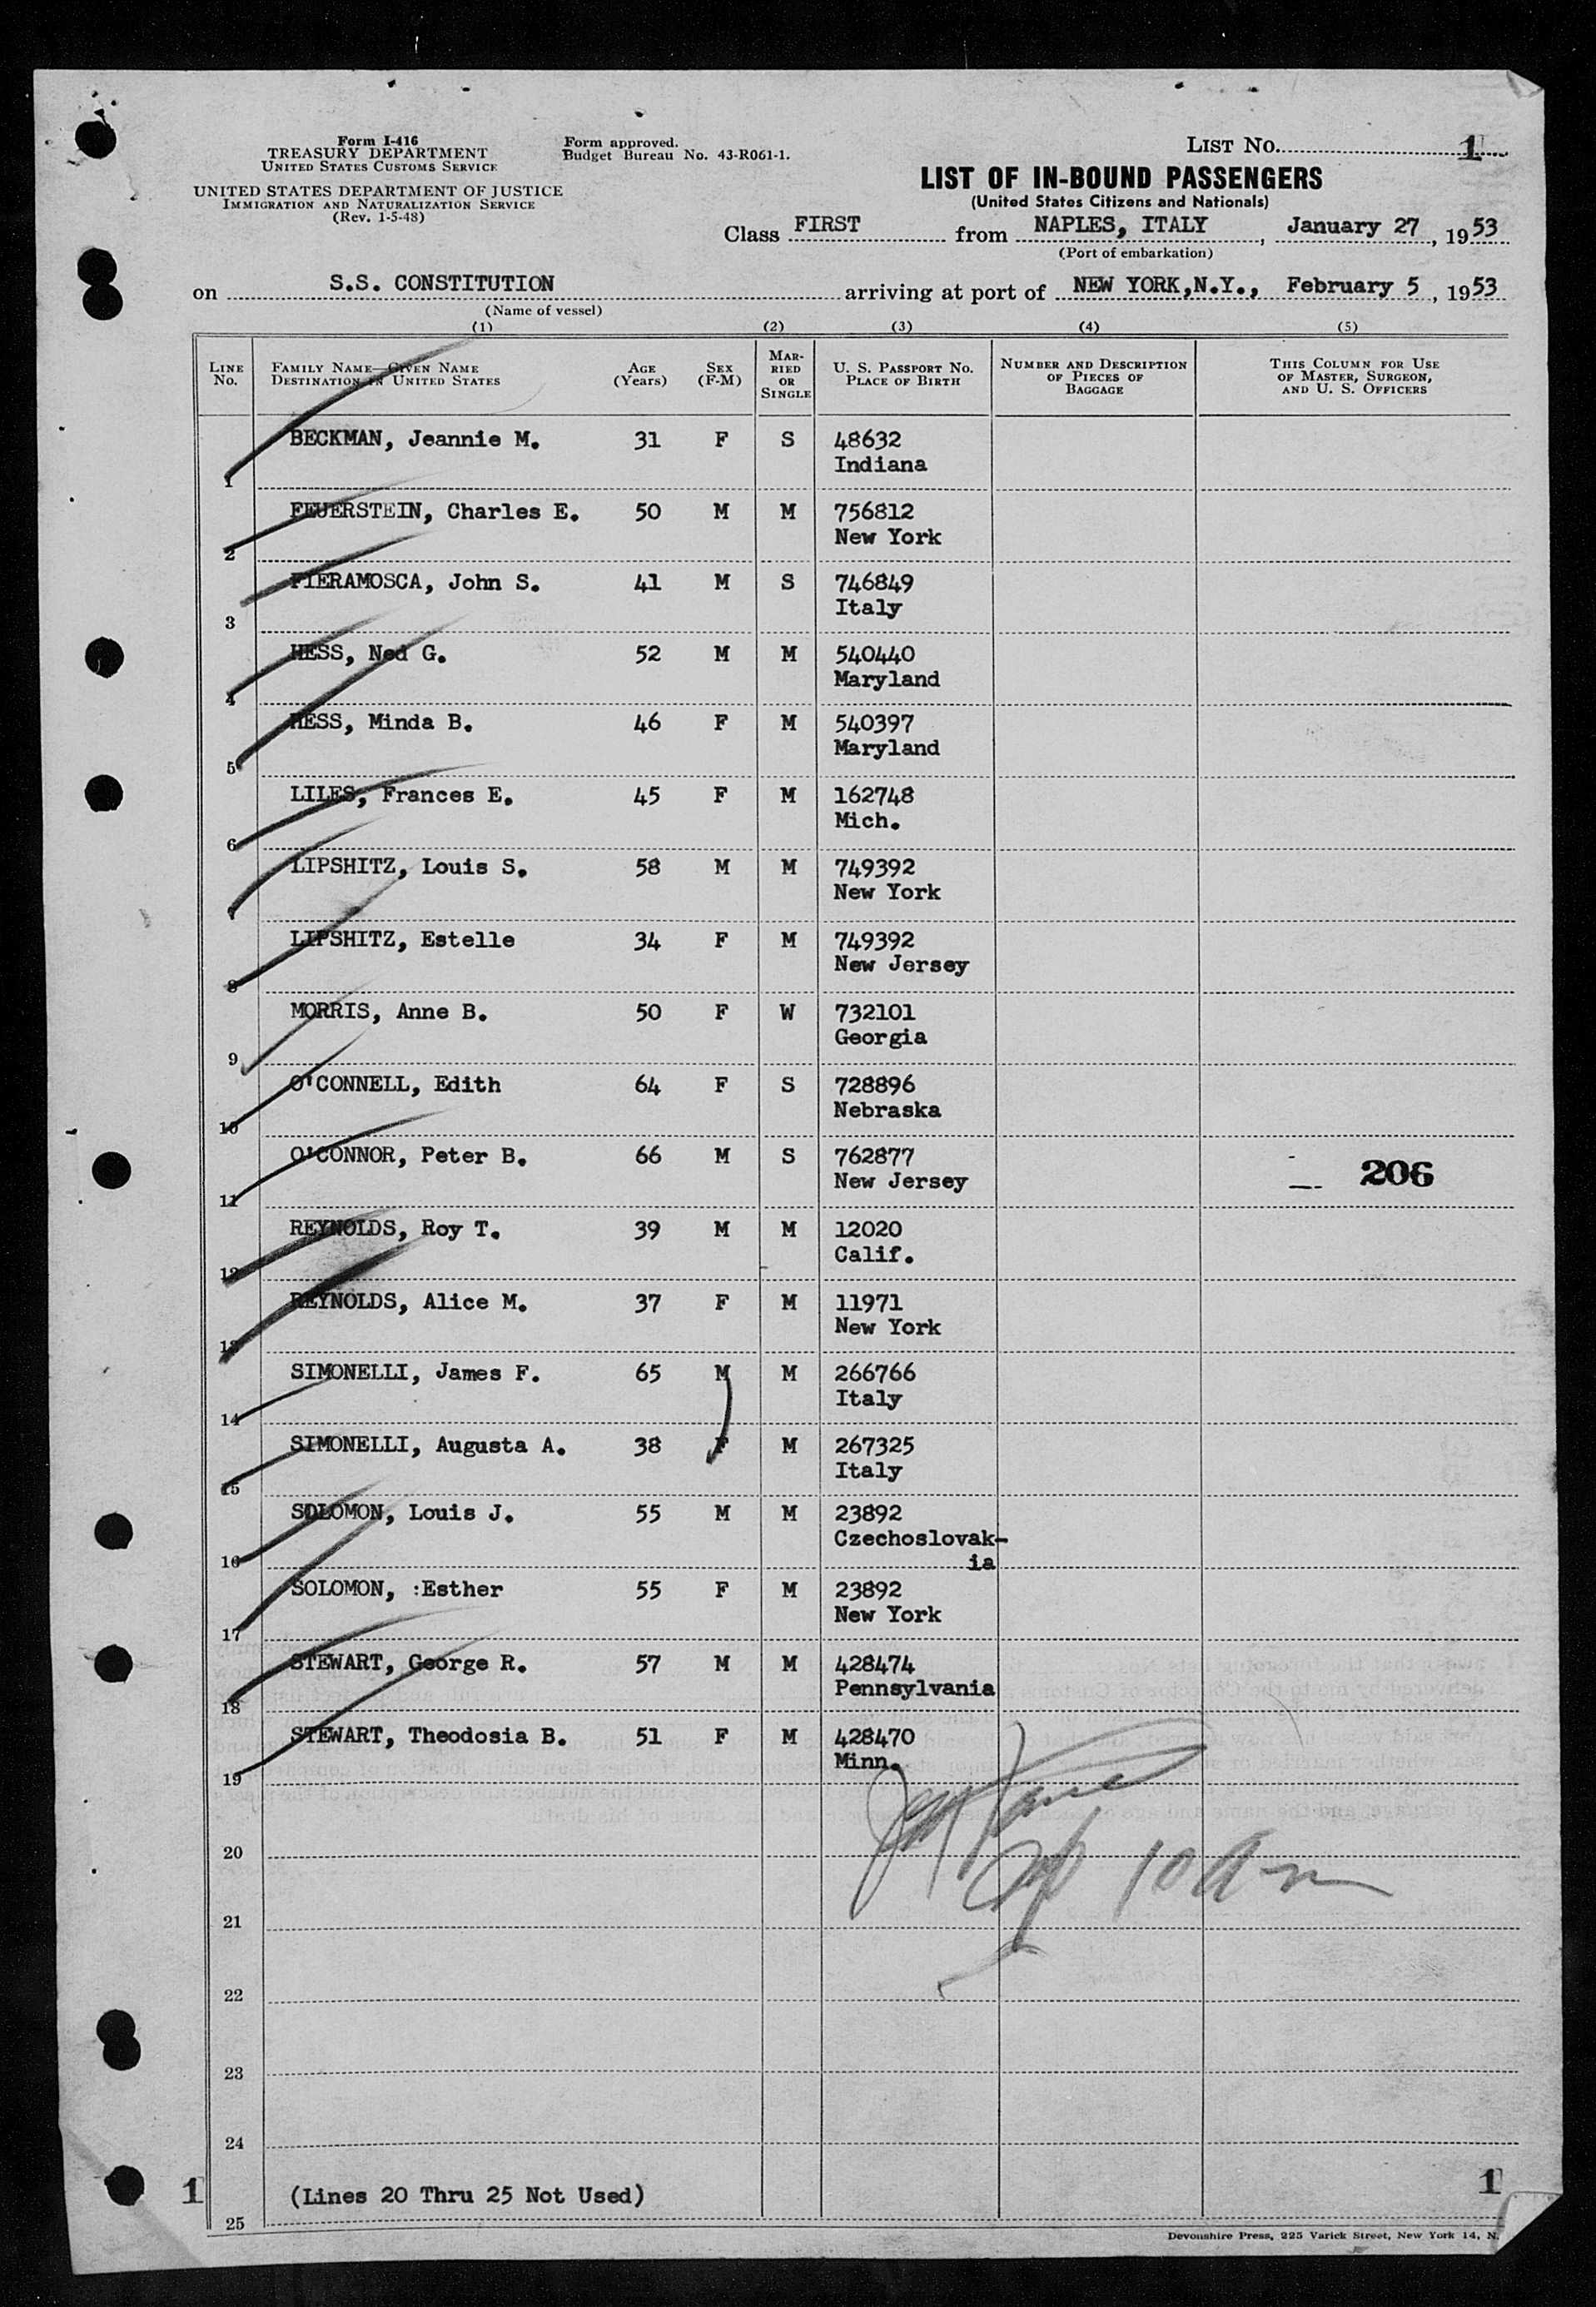 Form I-416
TREASURY DEPARTMENT
UNITED STATES CUSTOMS SERVICE
UNITED STATES DEPARTMENT OF JUSTICE
IMMIGRATION AND NATURALIZATION SERVICE
(Rev. 1-5-48)
Form approved.
Budget Bureau No. 43-R061-1.
LIST NO. 1
LIST OF IN-BOUND PASSENGERS
(United States Citizens and Nationals)
Class FIRST from NAPLES, ITALY, January 27, 1953
(Port of embarkation)
on S.S. CONSTITUTION arriving at port of NEW YORK,N.Y., February 5, 1953
(Name of vessel)
(1) (2) (3) (4) (5)
LINE NO. FAMILY NAME—GIVEN NAME DESTINATION IN UNITED STATES AGE (Years) SEX (F-M) MARRIED OR SINGLE U. S. PASSPORT NO. PLACE OF BIRTH NUMBER AND DESCRIPTION OF PIECES OF BAGGAGE THIS COLUMN FOR USE OF MASTER, SURGEON, AND U. S. OFFICERS
1 BECKMAN, Jeannie M. 31 F S 48632
Indiana
2 FEUERSTEIN, Charles E. 50 M M 756812
New York
3 FIERAMOSCA, John S. 41 M S 746849
Italy
4 HESS, Ned G. 52 M M 540440
Maryland
5 HESS, Minda B. 46 F M 540397
Maryland
6 LILES, Frances E. 45 F M 162748
Mich.
7 LIPSHITZ, Louis S. 58 M M 749392
New York
8 LIPSHITZ, Estelle 34 F M 749392
New Jersey
9 MORRIS, Anne B. 50 F W 732101
Georgia
10 O'CONNELL, Edith 64 F S 728896
Nebraska
11 O'CONNOR, Peter B. 66 M S 762877
New Jersey 206
12 REYNOLDS, Roy T. 39 M M 12020
Calif.
13 REYNOLDS, Alice M. 37 F M 11971
New York
14 SIMONELLI, James F. 65 M M 266766
Italy
15 SIMONELLI, Augusta A. 38 F M 267325
Italy
16 SOLOMON, Louis J. 55 M M 23892
Czechoslovak-
ia
17 SOLOMON, :Esther 55 F M 23892
New York
18 STEWART, George R. 57 M M 428474
Pennsylvania
19 STEWART, Theodosia B. 51 F M 428470
Minn.
20
10 am
21
22
23
24
1 (Lines 20 Thru 25 Not Used) 1
25
Devonshire Press, 225 Varick Street, New York 14, N.